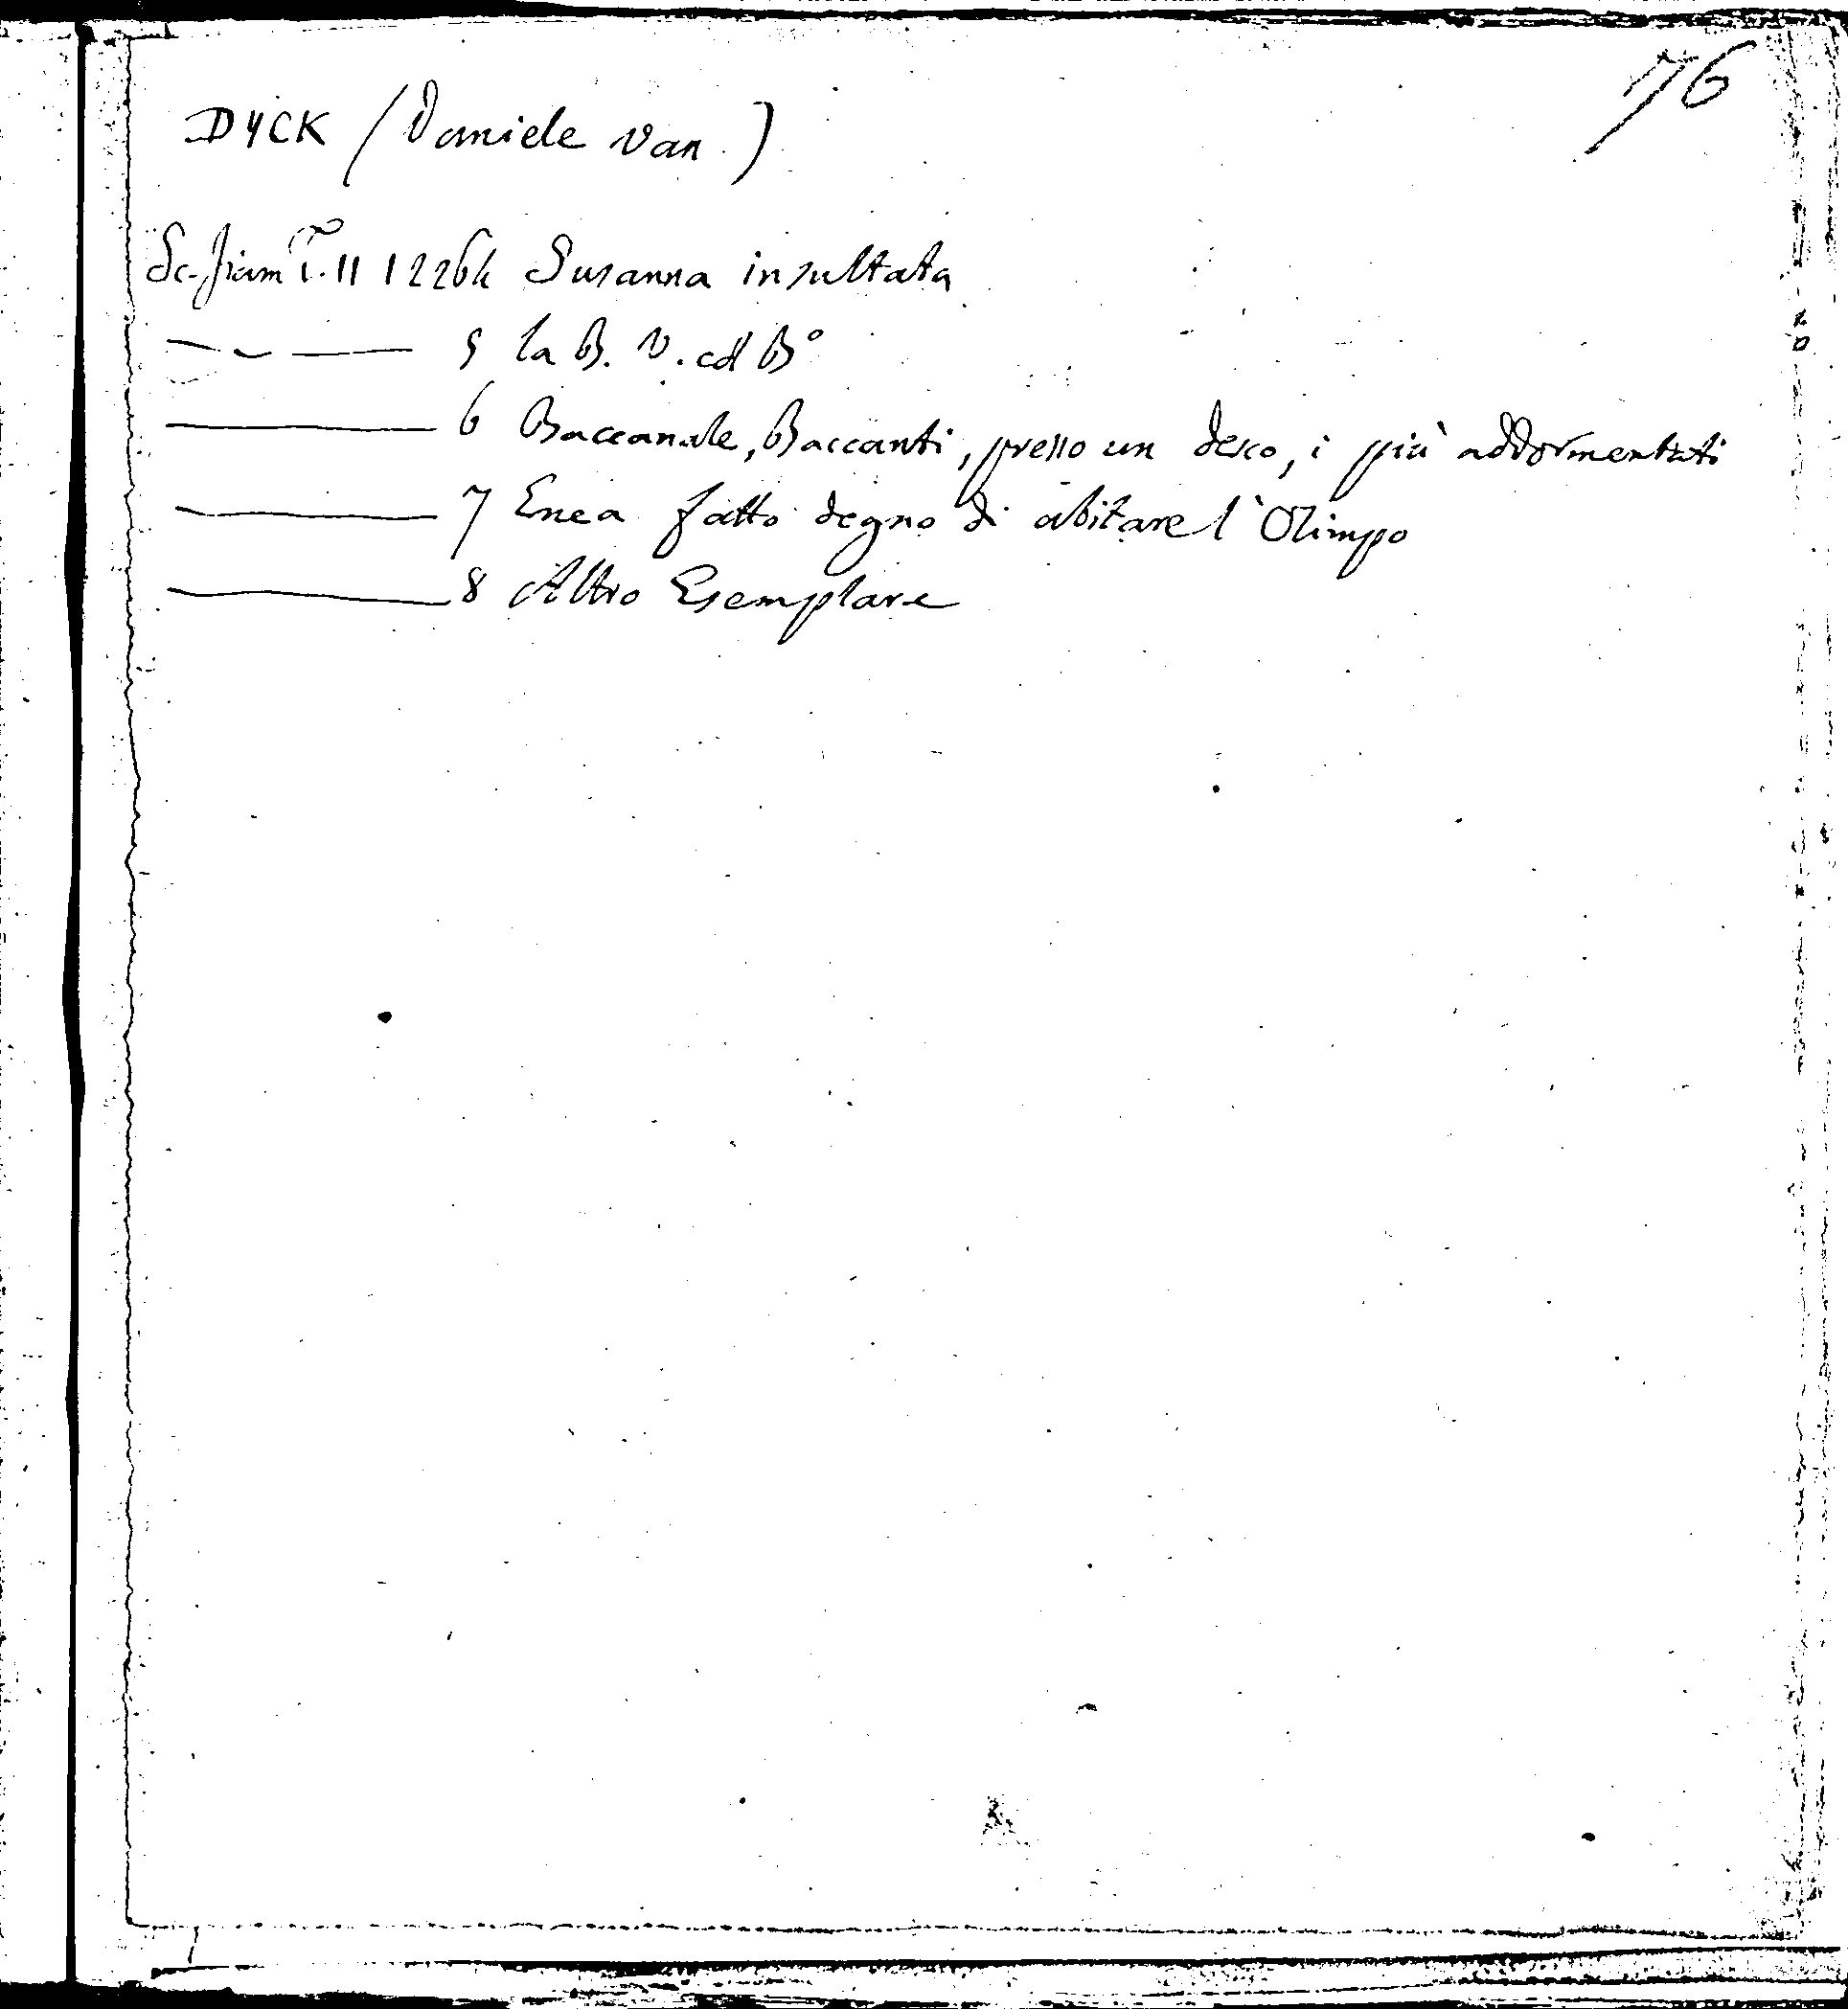 76
DYCK (Daniele Van)
Sc. fiam T. II 12264 Susanna insultata
5 la B. V. col B°
6 Baccanale, Baccanti, presso un desco, i più addormentati
7 Enea fatto degno di abitare l'Olimpo
8 Altro Esemplare